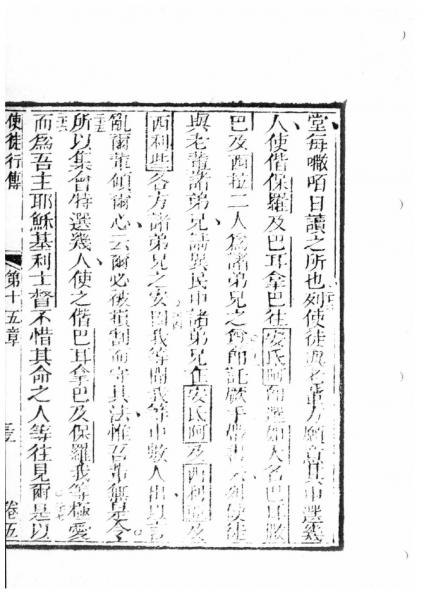 堂每嗽咟日讀之所也列使徒及老輩方願會其中選幾
人使偕保羅及巴耳拿巴往安氏阿即選如大名巴耳
巴及西拉二人為諸弟兄之首即託厥手帶書云列使徒
與老輩諸弟兄請異民中諸弟兄在安氏阿及西利亞及
西利些各方諸弟兄之安因我等聞我等中數人出以言
亂爾輩傾爾心云爾必被損割而守其法惟吾非無是令
所以集會特選幾人使之偕巴耳拿巴及保羅我等極愛
而為吾主耶穌基利士督不惜其命之人等往見爾是以
使徒行傳 第十五章 卷五